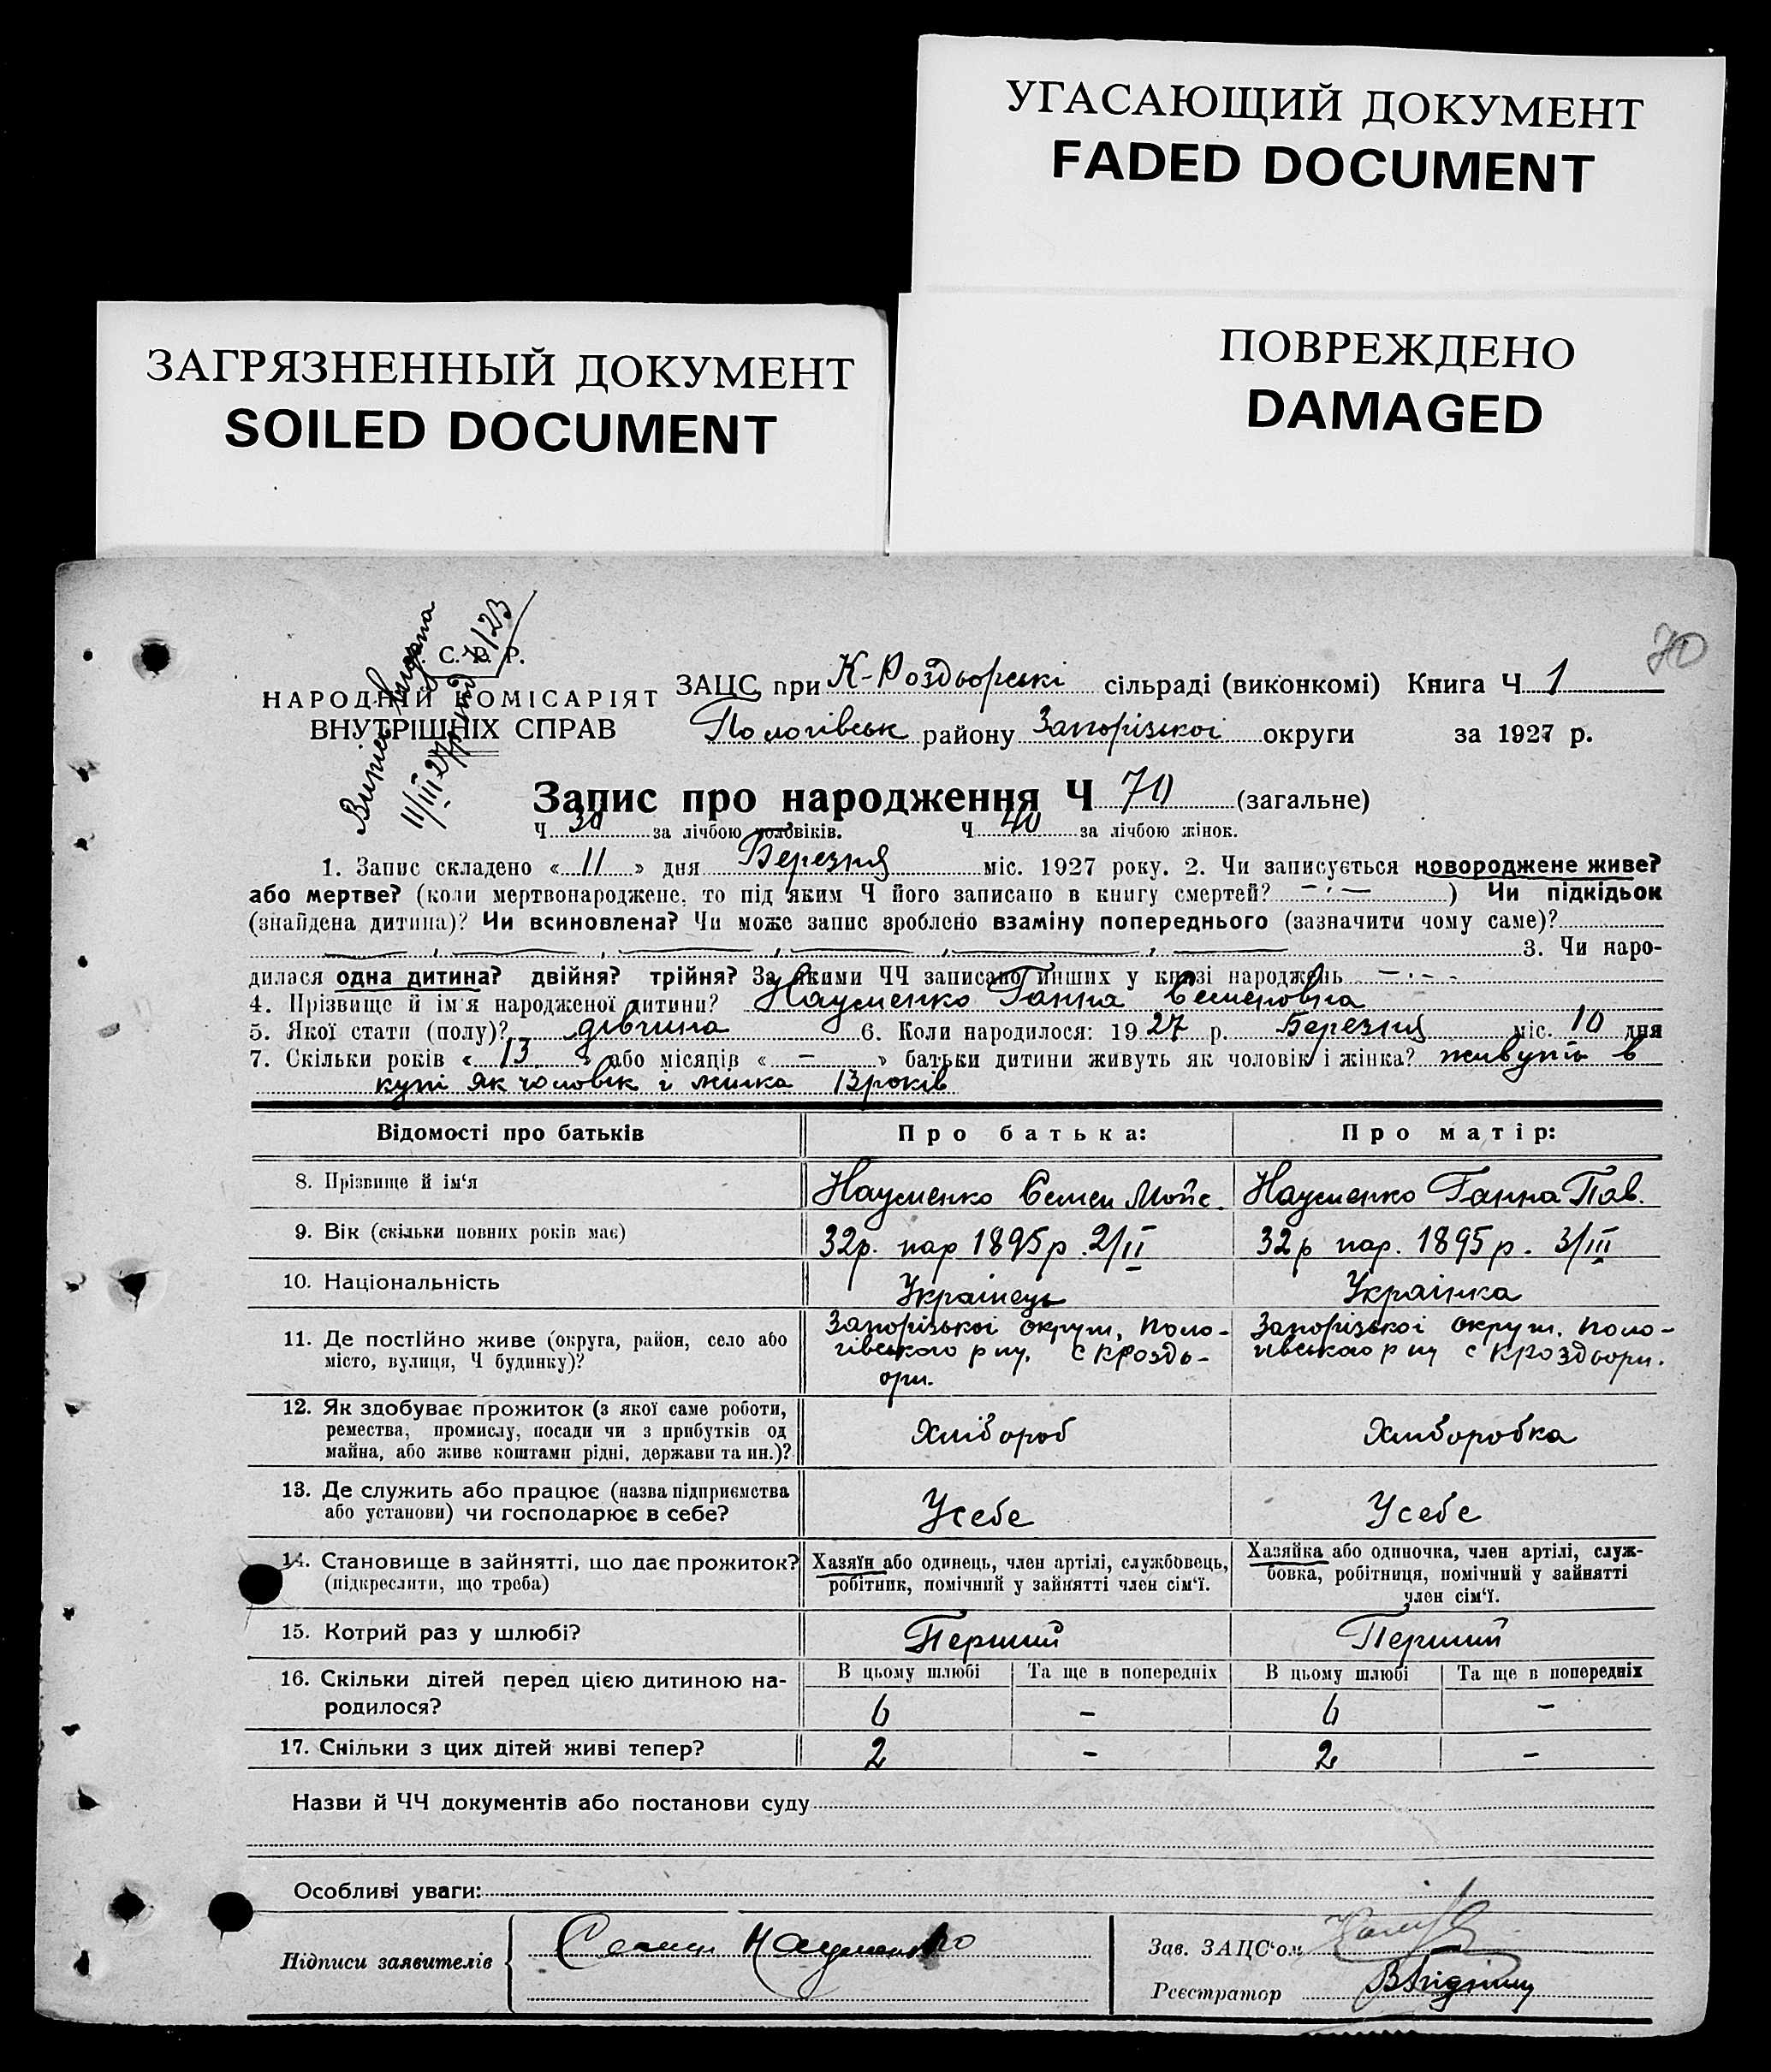 УГАСАЮЩИЙ ДОКУМЕНТ
FADED DOCUMENT
ПОВРЕЖДЕНО
DAMAGED
ЗАГРЯЗНЕННЫЙ ДОКУМЕНТ
SOILED DOCUMENT
70
Випис видана
11/III 27р
С. Р. Р.
НАРОДНІЙ КОМІСАРІЯТ
ВНУТРІШНІХ СПРАВ
ЗАЦС при К-Роздорські сільраді (виконкомі) Книга Ч 1
Пологівськ району Запорізкоі округи за 1927 р.
Запис про народження Ч 70 (загальне)
Ч 30 за лічбою чоловіків. Ч 40 за лічбою жінок.
1. Запис складено « 11 » дня Березня міс. 1927 року. 2. Чи записується новороджене живе?
або мертве? (коли мертвонароджене, то під яким Ч його записано в книгу смертей? —·— ) Чи підкідьок
(знайдена дитина)? Чи всиновлена? Чи може запис зроблено взаміну попереднього (зазначити чому саме)?
3. Чи наро-
дилася одна дитина? двійня? трійня? За якими ЧЧ записано инших у книзі народжень —·—
4. Прізвище й ім'я народженої дитини? Науменко Ганна Семеновна
5. Якої стати (полу)? дівчина 6. Коли народилося: 1927 р. Березня міс. 10 дня
7. Скільки років « 13 » або місяців « — » батьки дитини живуть як чоловік і жінка? живуть в
купі як чоловік і жінка 13 років
Відомості про батьків Про батька: Про матір:
8. Прізвище й ім'я Науменко Семен Мойс. Науменко Ганна Пав.
9. Вік (скільки повних років має) 32р. нар 1895р. 2/II 32р нар. 1895р. 3/III
10. Національність Українець Українка
11. Де постійно живе (округа, район, село або
місто, вулиця, Ч будинку)?
Запорізькоі округи, Поло-
гівського р ну, с Кроздо-
ори.
Запорізькоі округи, Поло-
гівського р ну с Кроздоори.
12. Як здобуває прожиток (з якої саме роботи,
ремества, промислу, посади чи з прибутків од
майна, або живе коштами рідні, держави та ин.)?
Хлібороб Хліборобка
13. Де служить або працює (назва підприємства
або установи) чи господарює в себе?
Усебе Усебе
14. Становище в зайнятті, що дає прожиток?
(підкреслити, що треба)
Хазяїн або одинець, член артілі, службовець,
робітник, помічний у зайнятті член сім'ї.
Хазяйка або одиночка, член артілі, служ-
бовка, робітниця, помічний у зайнятті
член сім'ї.
15. Котрий раз у шлюбі? Перший Перший
16. Скільки дітей перед цією дитиною на-
родилося?
В цьому шлюбі Та ще в попередніх В цьому шлюбі Та ще в попередніх
6 — 6 —
17. Скільки з цих дітей живі тепер? 2 — 2 —
Назви й ЧЧ документів або постанови суду
Особливі уваги:
Підписи заявителів Семен Науменко
Зав. ЗАЦС'ом
Реєстратор